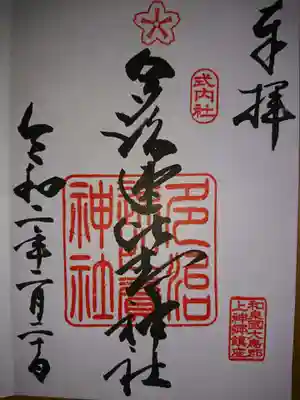 奉拝
式内社
多治速比売神社
多治速比賣神社
和泉國大鳥郡
上神郷鎮座
令和二年二月二十日